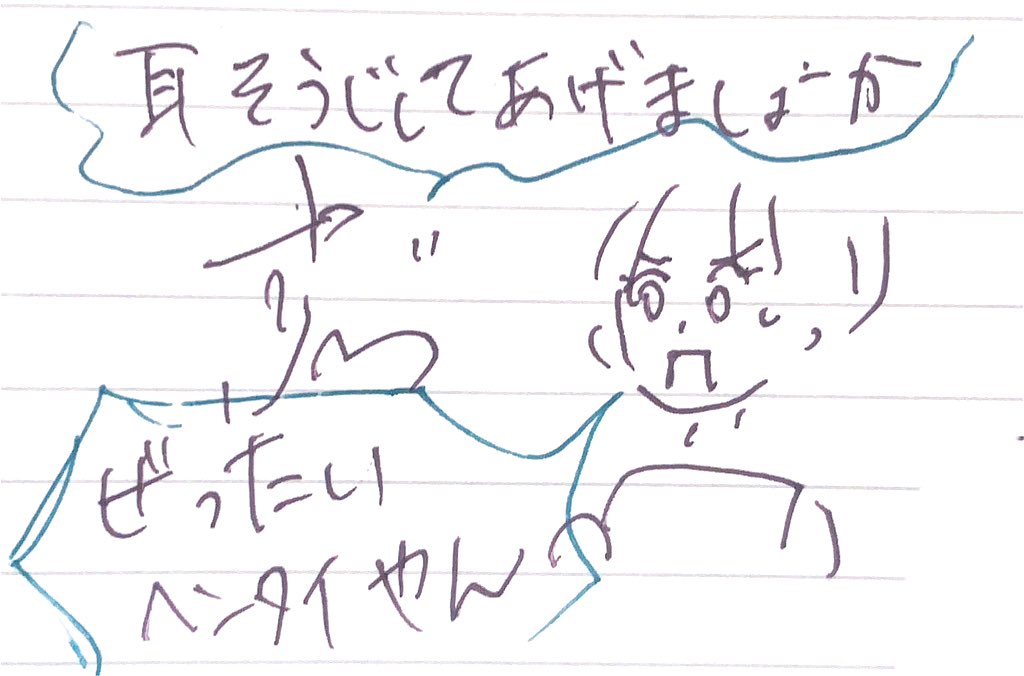 耳そうじしてあげましょーか
ぜったい
ヘンタイやん